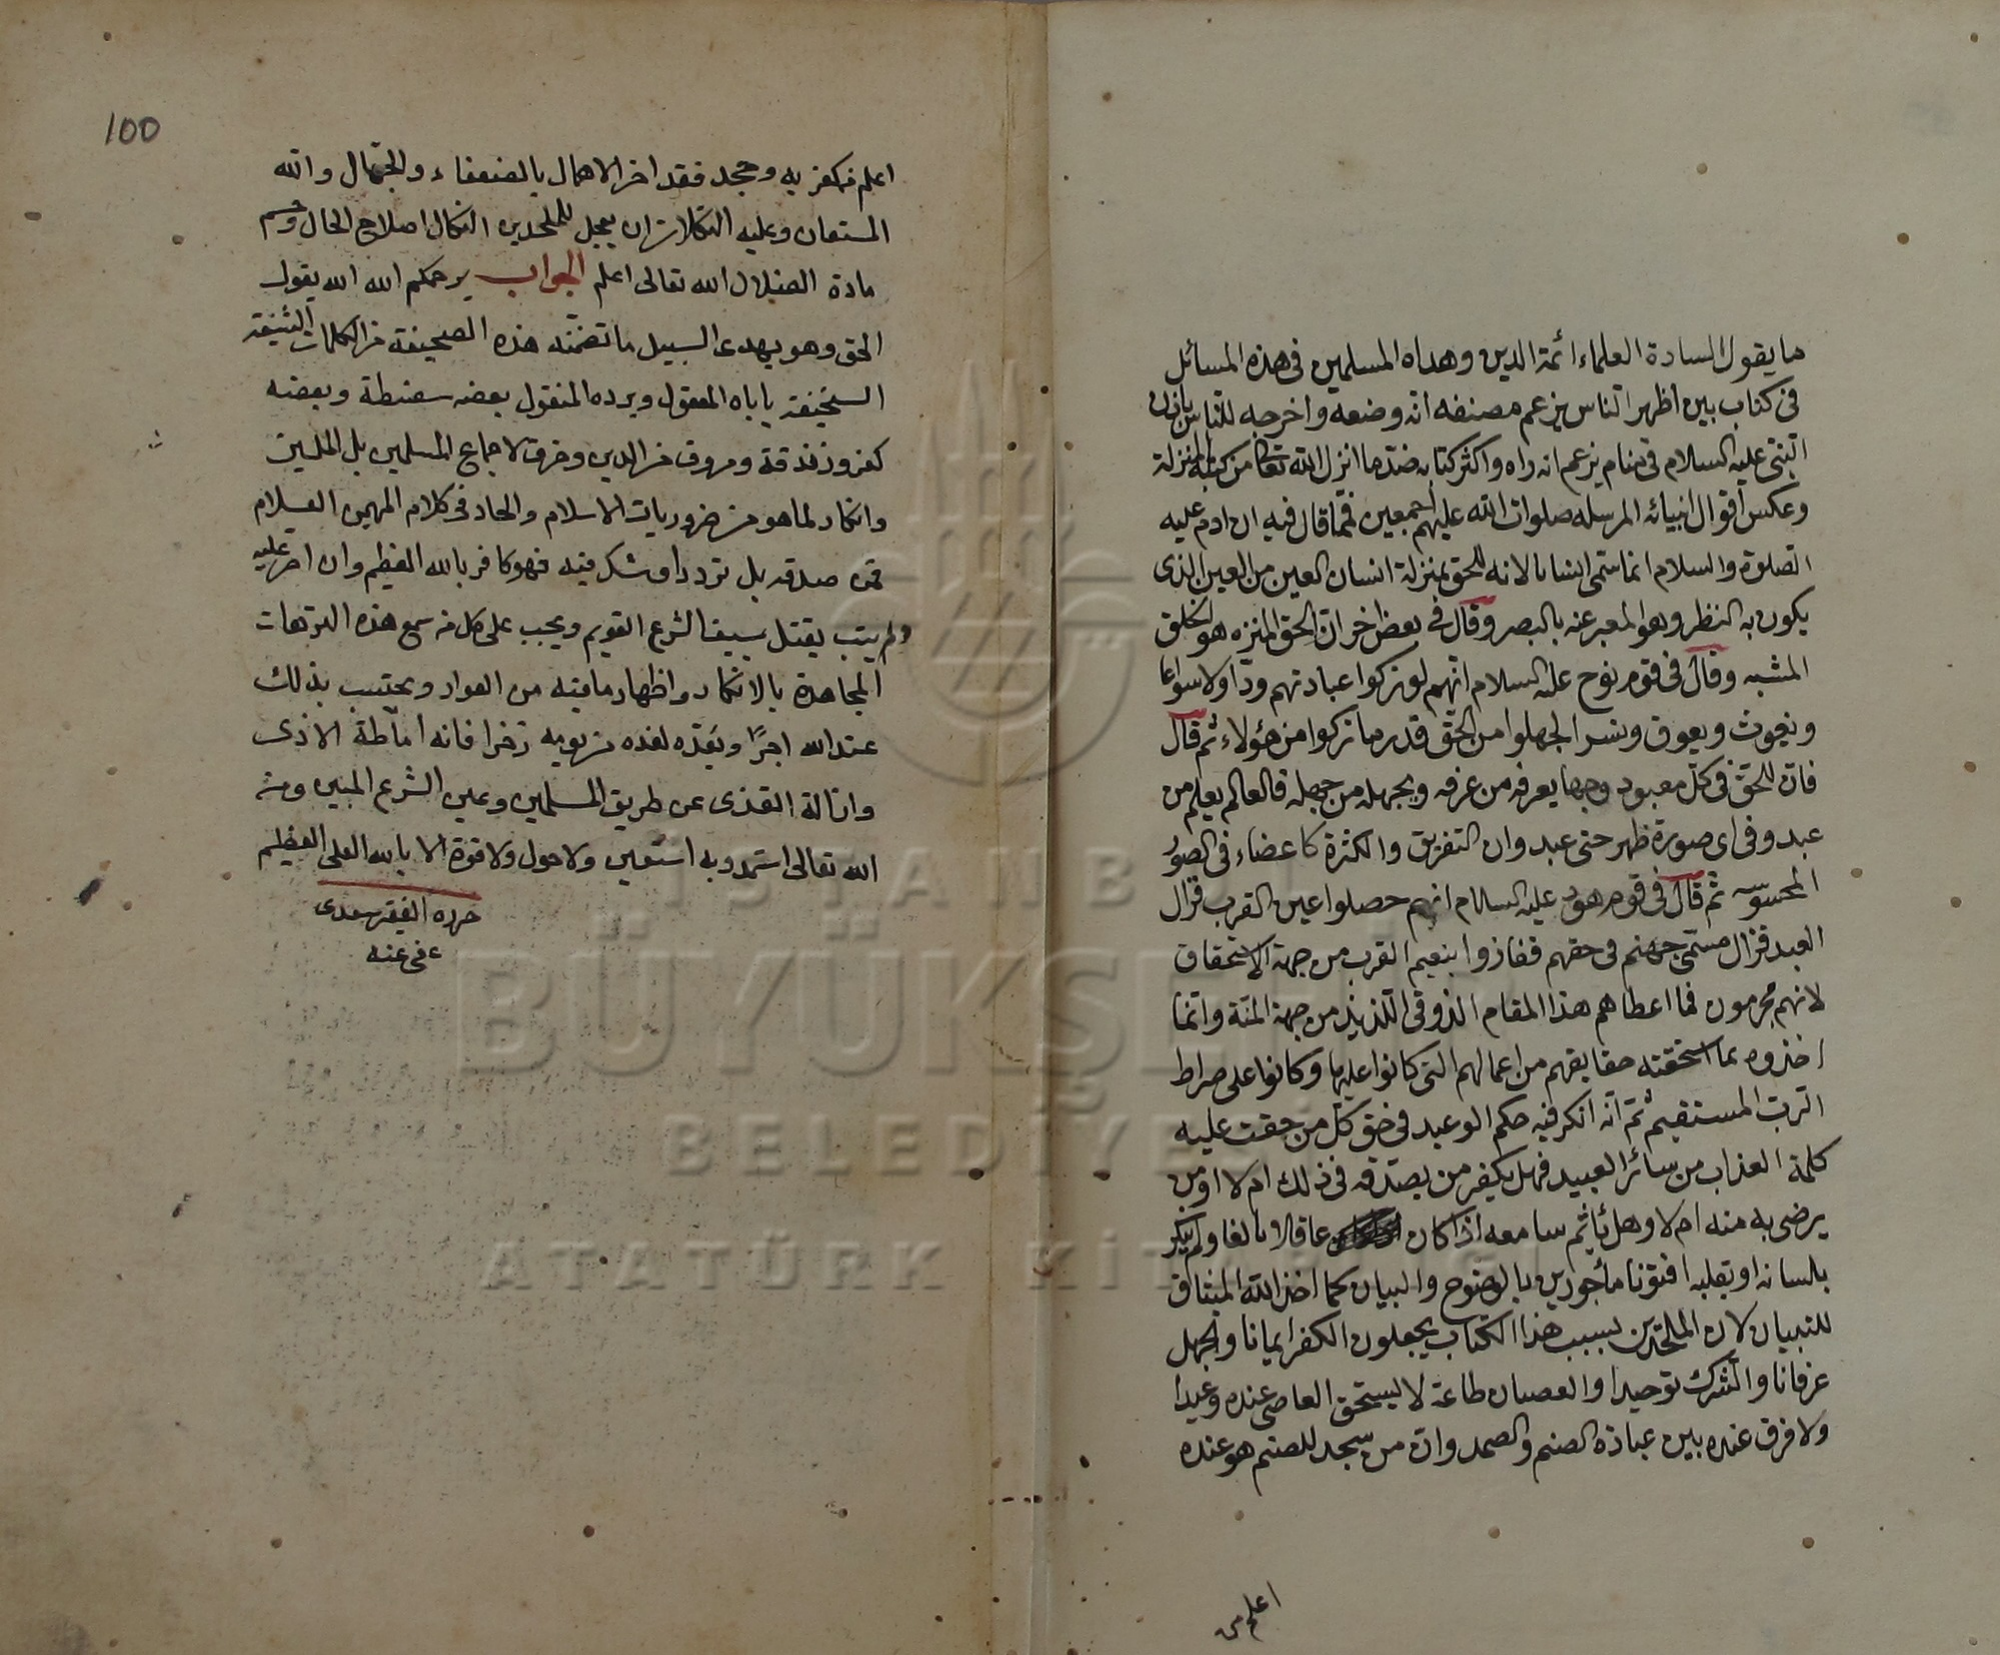 ما يقول السادة العلماء ائمة الدين وهداه المسلمين في هذه المسائل
في كتاب بين اظهر الناس يزعم مصنفه انه وضعه واخرجه للناس باذن
النبي عليه السلام في منام يزعم انه راه واكثر كتابه ضد ما انزل الله تعالى من كتبه المنزلة
وعكس اقوال انبيائه المرسله صلوات الله عليهم اجمعين فمما قال فيه ان ادم عليه
الصلوة والسلام انما سمى انسانا لانه للحق بمنزلة انسان العين من العين الذى
يكون به النظر وهو المعبر عنه بالبصر وقال في بعض اخر ان الحق المنزه هو الخلق
المشبه وقال في قوم نوح عليه السلام انهم لو تركوا عبادتهم ودا ولا سواعا
ويغوث ويعوق ونسرا لجهلوا من الحق قدر ما تركوا من هؤلاء ثم قال
فان للحق في كل معبود وجها يعرفه من عرفه ويجهله من جهله فالعالم يعلم من
عبد وفى اى صورة ظهر حتى عبد وان التفريق والكثرة كاعضاء فى الصور
المحسوسه ثم قال في قوم هود عليه السلام انهم حصلوا عين القرب فزال
البعد فزال مسمى جهنم فى حقهم ففازوا بنعيم القرب من جهة الاستحقاق
لانهم مجرمون فما اعطاهم هذا المقام الذوقى اللذيذ من جهة المنة وانما
اخذوه بما استحقته حقايقهم من اعمالهم التى كانوا عليها وكانوا على صراط
الرب المستقيم ثم انه انكر فيه حكم الوعيد فى حق كل من حقت عليه
كلمة العذاب من سائر العبيد فهل يكفر من يصدقه فى ذلك ام لا او من
يرضى به منه ام لا وهل يأثم سامعه اذا كان عاقلا بالغا ولم ينكر
بلسانه او بقلبه افتونا مأجورين بالوضوح والبيان كما اخذ الله الميثاق
للتبيان لان الملحدين بسبب هذا الكتاب يجعلون الكفر ايمانا والجهل
عرفانا والشرك توحيدا والعصيان طاعة لا يستحق العاصى عنده وعيدا
ولا فرق عنده بين عبادة الصنم والصمد وان من سجد للصنم هو عنده
اعلم من
100
اعلم من كفر به وجحد فقد اضر الاهمال بالضعفاء والجهال والله
المستعان وعليه التكلان ان يعجل للملحدين النكال اصلاح الحال وحسم
مادة الضلال الله تعالى اعلم الجواب يرحمكم الله الله يقول
الحق وهو يهدى السبيل ما تضمنه هذه الصحيفة من الكلمات الشنيعة
السخيفة ياباه المعقول ويرده المنقول بعضه سفسطة وبعضه
كفر وزندقة ومروق من الدين وخرق لاجماع المسلمين بل المليين
وانكار لما هو من ضروريات الاسلام والحاد فى كلام المهيمن العلام
فمن صدقه بل تردد او شك فيه فهو كافر بالله العظيم وان اصر عليه
ولم يتب يقتل بسيف الشرع القويم ويجب على كل من سمع هذه الترهات
المجاهدة بالانكار واظهار ما فيه من العوار ويحتسب بذلك
عند الله اجرا ويعده لغده من يومه ذخرا فانه اماطة الاذى
وازالة القذى عن طريق المسلمين وعين الشرع المبين ومن
الله تعالى استمد وبه استعين ولا حول ولا قوة الا بالله العلى العظيم
حرره الفقير سعدى
عفى عنه
İSTANBUL
BÜYÜKŞEHİR
BELEDİYESİ
ATATÜRK KİTAPLIĞI